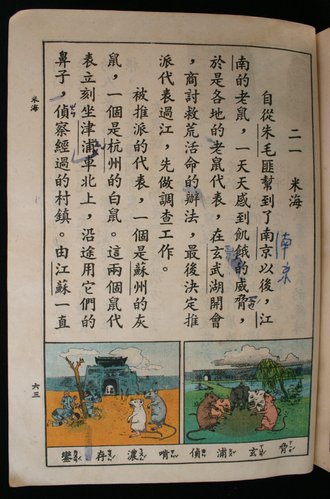 二一　米海
自從朱毛匪幫到了南京以後，江
南的老鼠，一天天感到飢餓的威脅，
於是各地的老鼠代表，在玄武湖開會
，商討救荒活命的辦法，最後決定推
派代表過江，先做調查工作。
被推派的代表，一個是蘇州的灰
鼠，一個是杭州的白鼠。這兩個鼠代
表立刻坐津浦車北上，沿途用它們的
鼻子，偵察經過的村鎮。由江蘇一直
南京
脅 玄 浦 偵 啃 濃 存
米海
六三